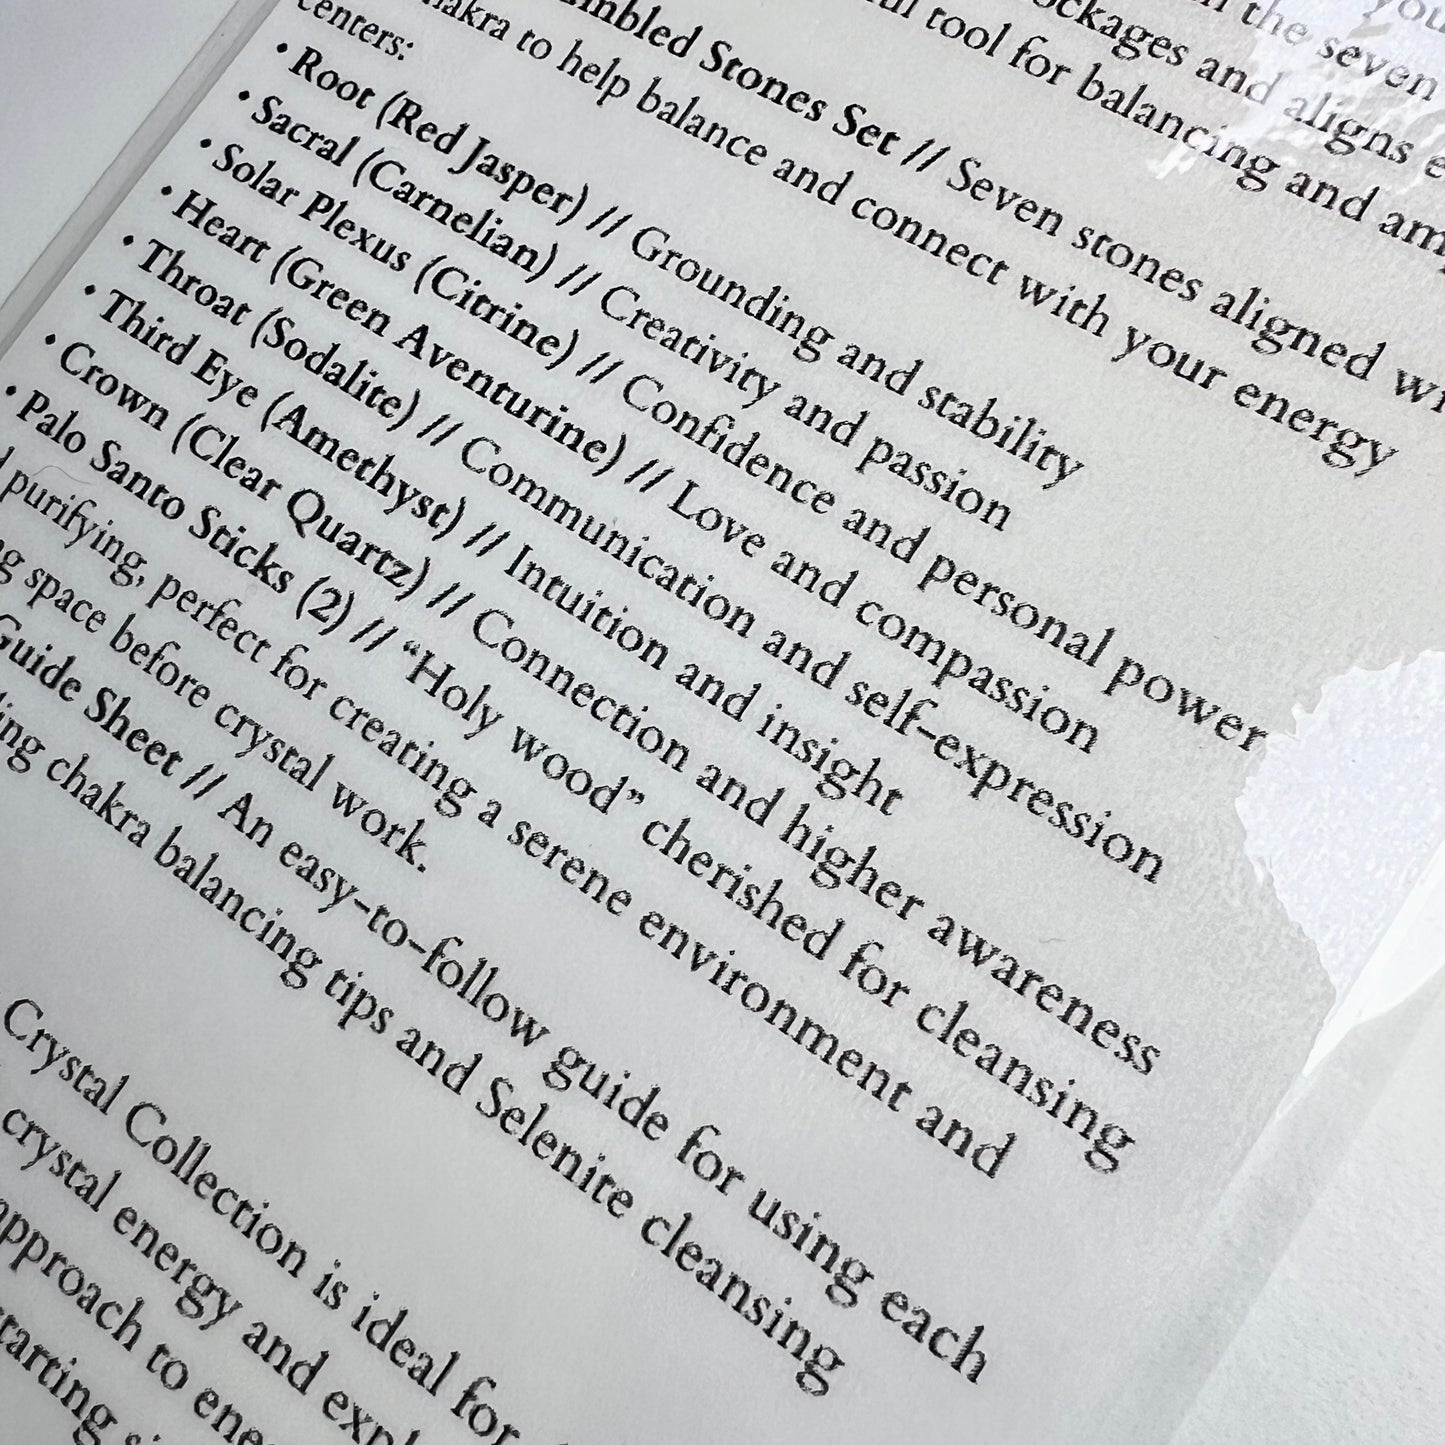 the seven
and aligns
tool for balancing and
Stones Set // Seven stones aligned
to help balance and connect with your energy
centers:
• Root (Red Jasper) // Grounding and stability
• Sacral (Carnelian) // Creativity and passion
• Solar Plexus (Citrine) // Confidence and personal power
• Heart (Green Aventurine) // Love and compassion
• Throat (Sodalite) // Communication and self-expression
• Third Eye (Amethyst) // Intuition and insight
• Crown (Clear Quartz) // Connection and higher awareness
• Palo Santo Sticks (2) // “Holy wood” cherished for cleansing
purifying, perfect for creating a serene environment and
space before crystal work.
Guide Sheet // An easy-to-follow guide for using each
chakra balancing tips and Selenite cleansing
Crystal Collection is ideal for
crystal energy and
approach to